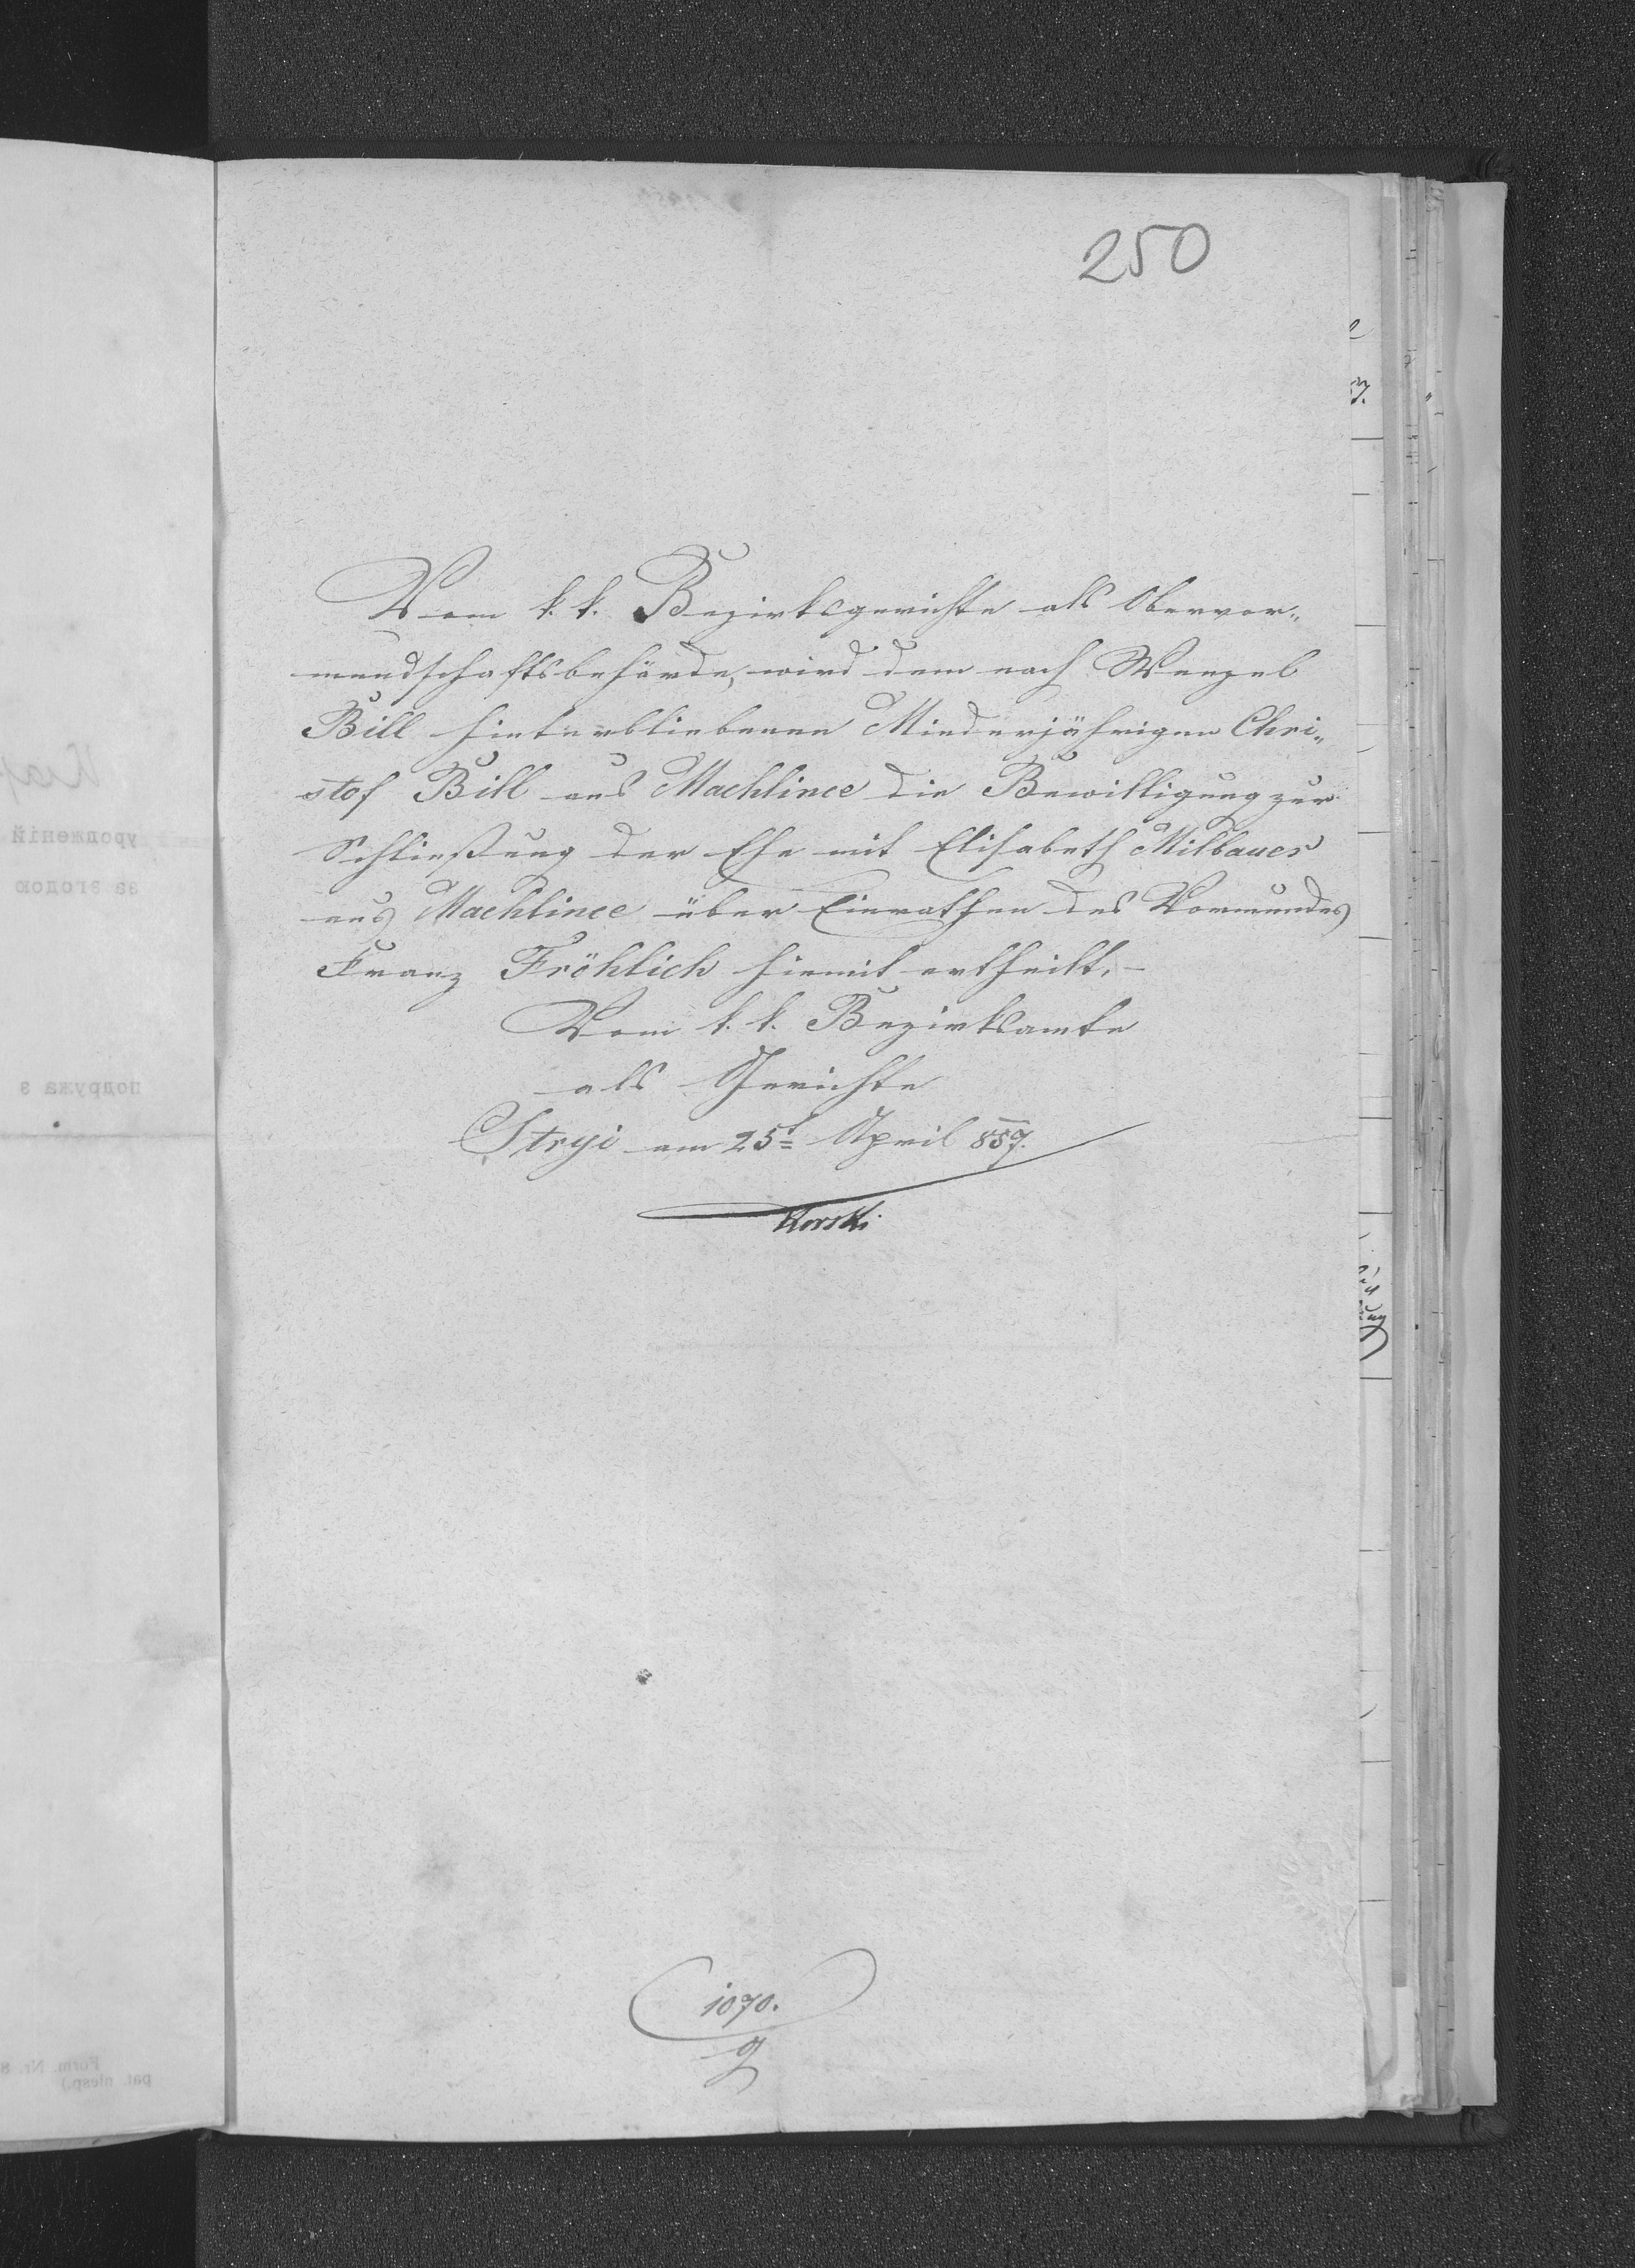 250
Vom k. k. Bezirksgerichte als Obervor„
mundschaftsbehörde, wird dem nach Wenzel
Bill hinterbliebenen Minderjährigen Chri„
stof Bill aus Machlince die Bewilligung zur
Schließung der Ehe mit Elisabeth Milbauer
aus Machlince über Einrathen des Vormundes
Franz Fröhlich hiemit ertheilt. –
Vom k. k. Bezirksamte
als Gerichte
Stryi am 25t April 857.
1070.
уродженій
за згодою
подружа з
Form. Nr. 8